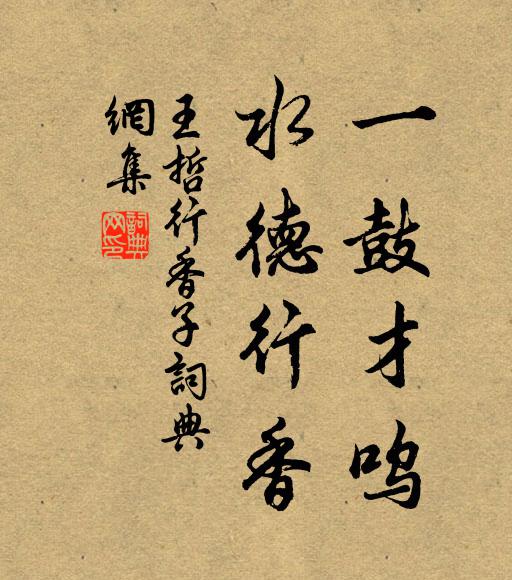 一鼓才鸣
水德行香
王哲行香子詞典
網集
詞典
网印